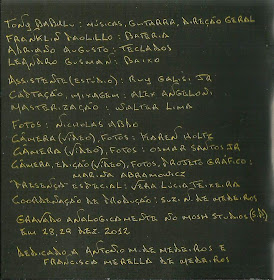 TONY BABALU: MÚSICAS, GUITARRA, DIREÇÃO GERAL
FRANKLIN PAOLILLO: BATERIA
ADRIANO AUGUSTO: TECLADOS
LEANDRO GUSMAN: BAIXO
ASSISTENTE (ESTÚDIO): RUY GALISI JR
CAPTAÇÃO, MIXAGEM: ALEX ANGELONI
MASTERIZAÇÃO: WALTER LIMA
FOTOS: NICHOLAS
CÂMERA (VÍDEO), FOTOS: KAREN HOLTZ
CÂMERA (VÍDEO), FOTOS: OSMAR SANTOS JR
CÂMERA, EDIÇÃO (VÍDEO), FOTOS, PROJETO GRÁFICO:
MARINA ABRAMOWICZ
PRESENÇA ESPECIAL: VERA LÚCIA TEIXEIRA
COORDENAÇÃO DE PRODUÇÃO: SUZI N. DE MEDEIROS
GRAVADO ANALOGICAMENTE NO MOSH STUDIOS (S.P.)
EM 28, 29 DEZ. 2012
DEDICADO A ANTONIO M. DE MEDEIROS E
FRANCISCA MERELLA DE MEDEIROS